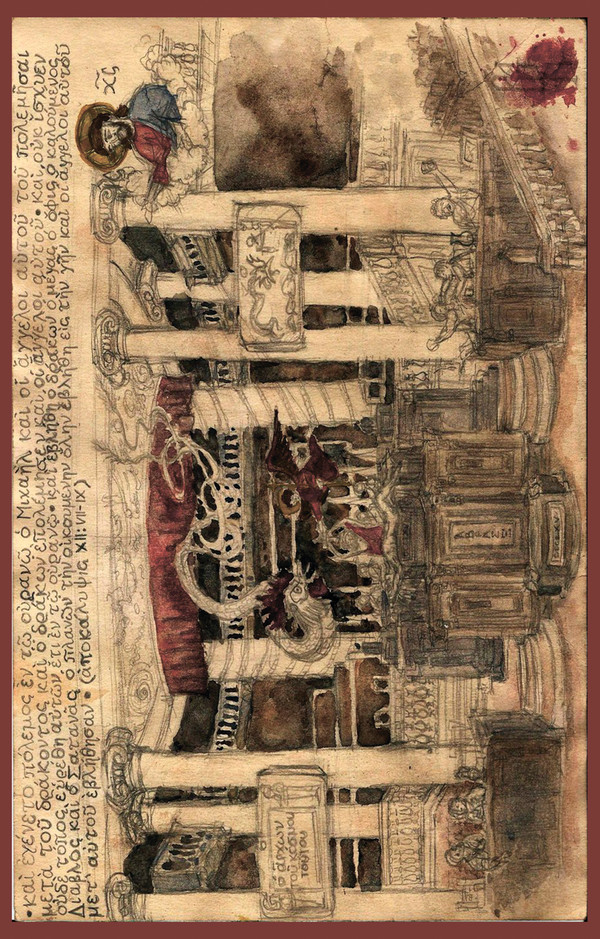 •καὶ ἐγένετο πόλεμος ἐν τῷ οὐρανῷ, ὁ Μιχαὴλ καὶ οἱ ἄγγελοι αὐτοῦ τοῦ πολεμῆσαι
μετὰ τοῦ δράκοντος καὶ ὁ δράκων ἐπολέμησεν καὶ οἱ ἄγγελοι αὐτοῦ• καὶ οὐκ ἴσχυεν
οὐδὲ τόπος εὑρέθη αὐτῶν ἔτι ἐν τῷ οὐρανῷ• καὶ ἐβλήθη ὁ δράκων ὁ μέγας ὁ ὄφις ὁ καλούμενος
Διάβολος καὶ ὁ Σατανᾶς, ὁ πλανῶν τὴν οἰκουμένην ὅλην ἐβλήθη εἰς τὴν γῆν καὶ οἱ ἄγγελοι αὐτοῦ
μετ' αὐτοῦ ἐβλήθησαν• (ἀποκάλυψις XII:VII-IX)
χς
ὁ ἄρχων
τοῦ κόσμου
τούτου